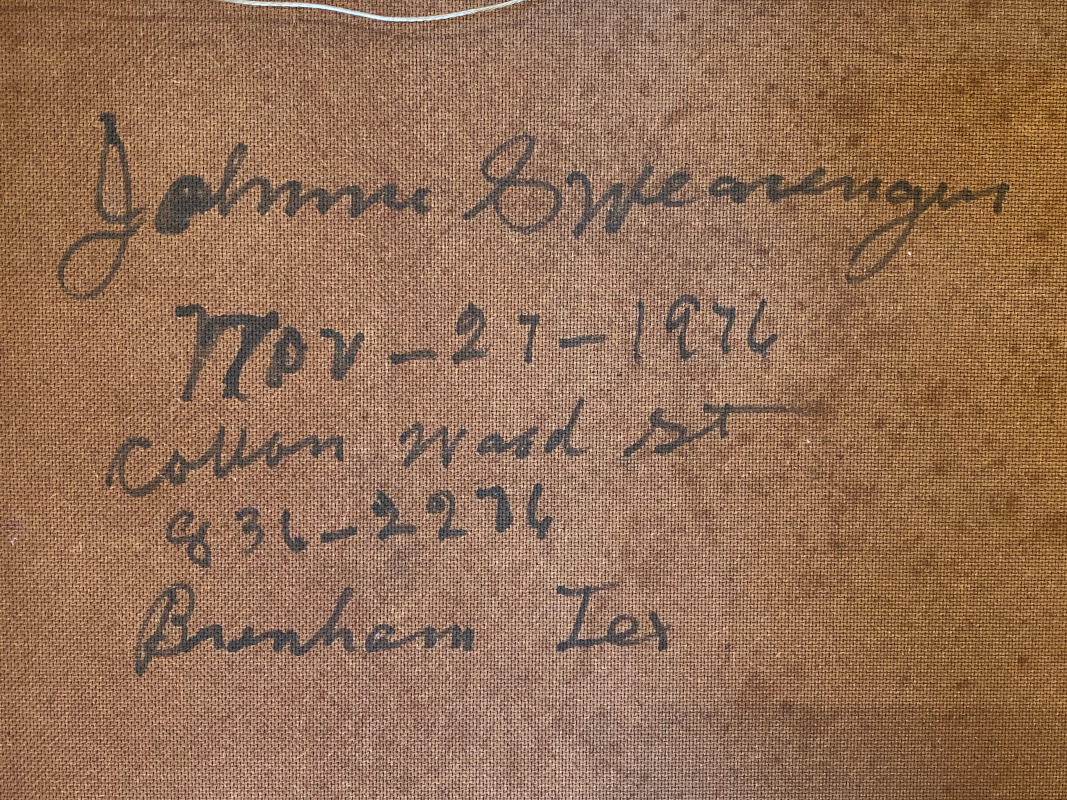 Johnnie Swearengin
Nov-27-1976
Cotton Wood St
836-2276
Brenham Tex